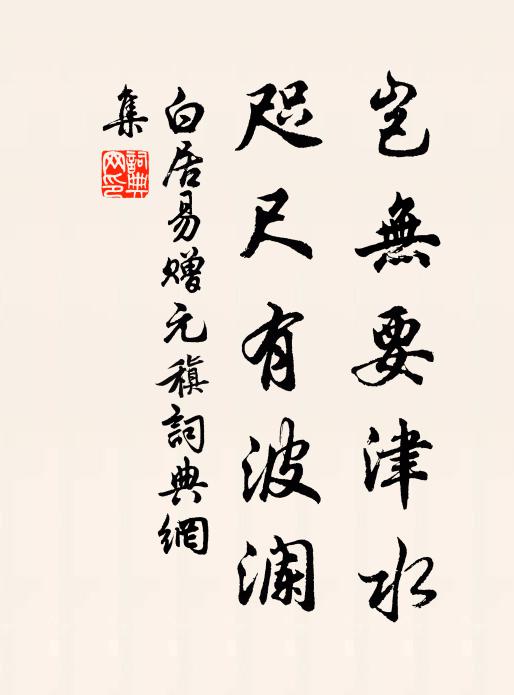 豈無要津水
咫尺有波瀾
白居易贈元稹詞典網
集
詞典网印